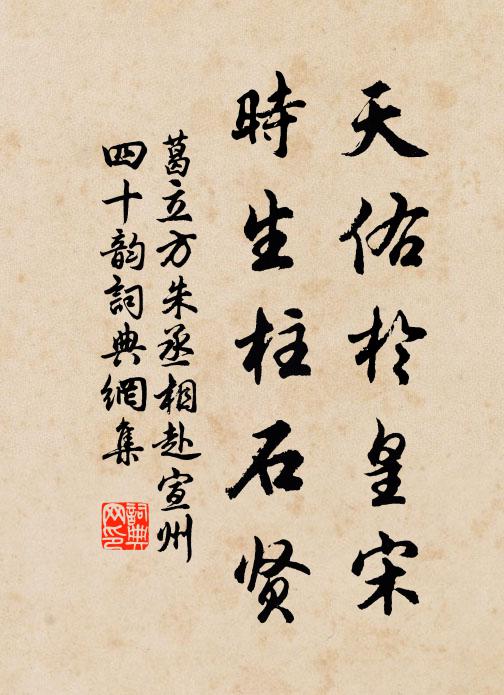 天佑於皇宋
時生柱石贤
葛立方朱丞相赴宣州
四十韵詞典網集
詞典
网印